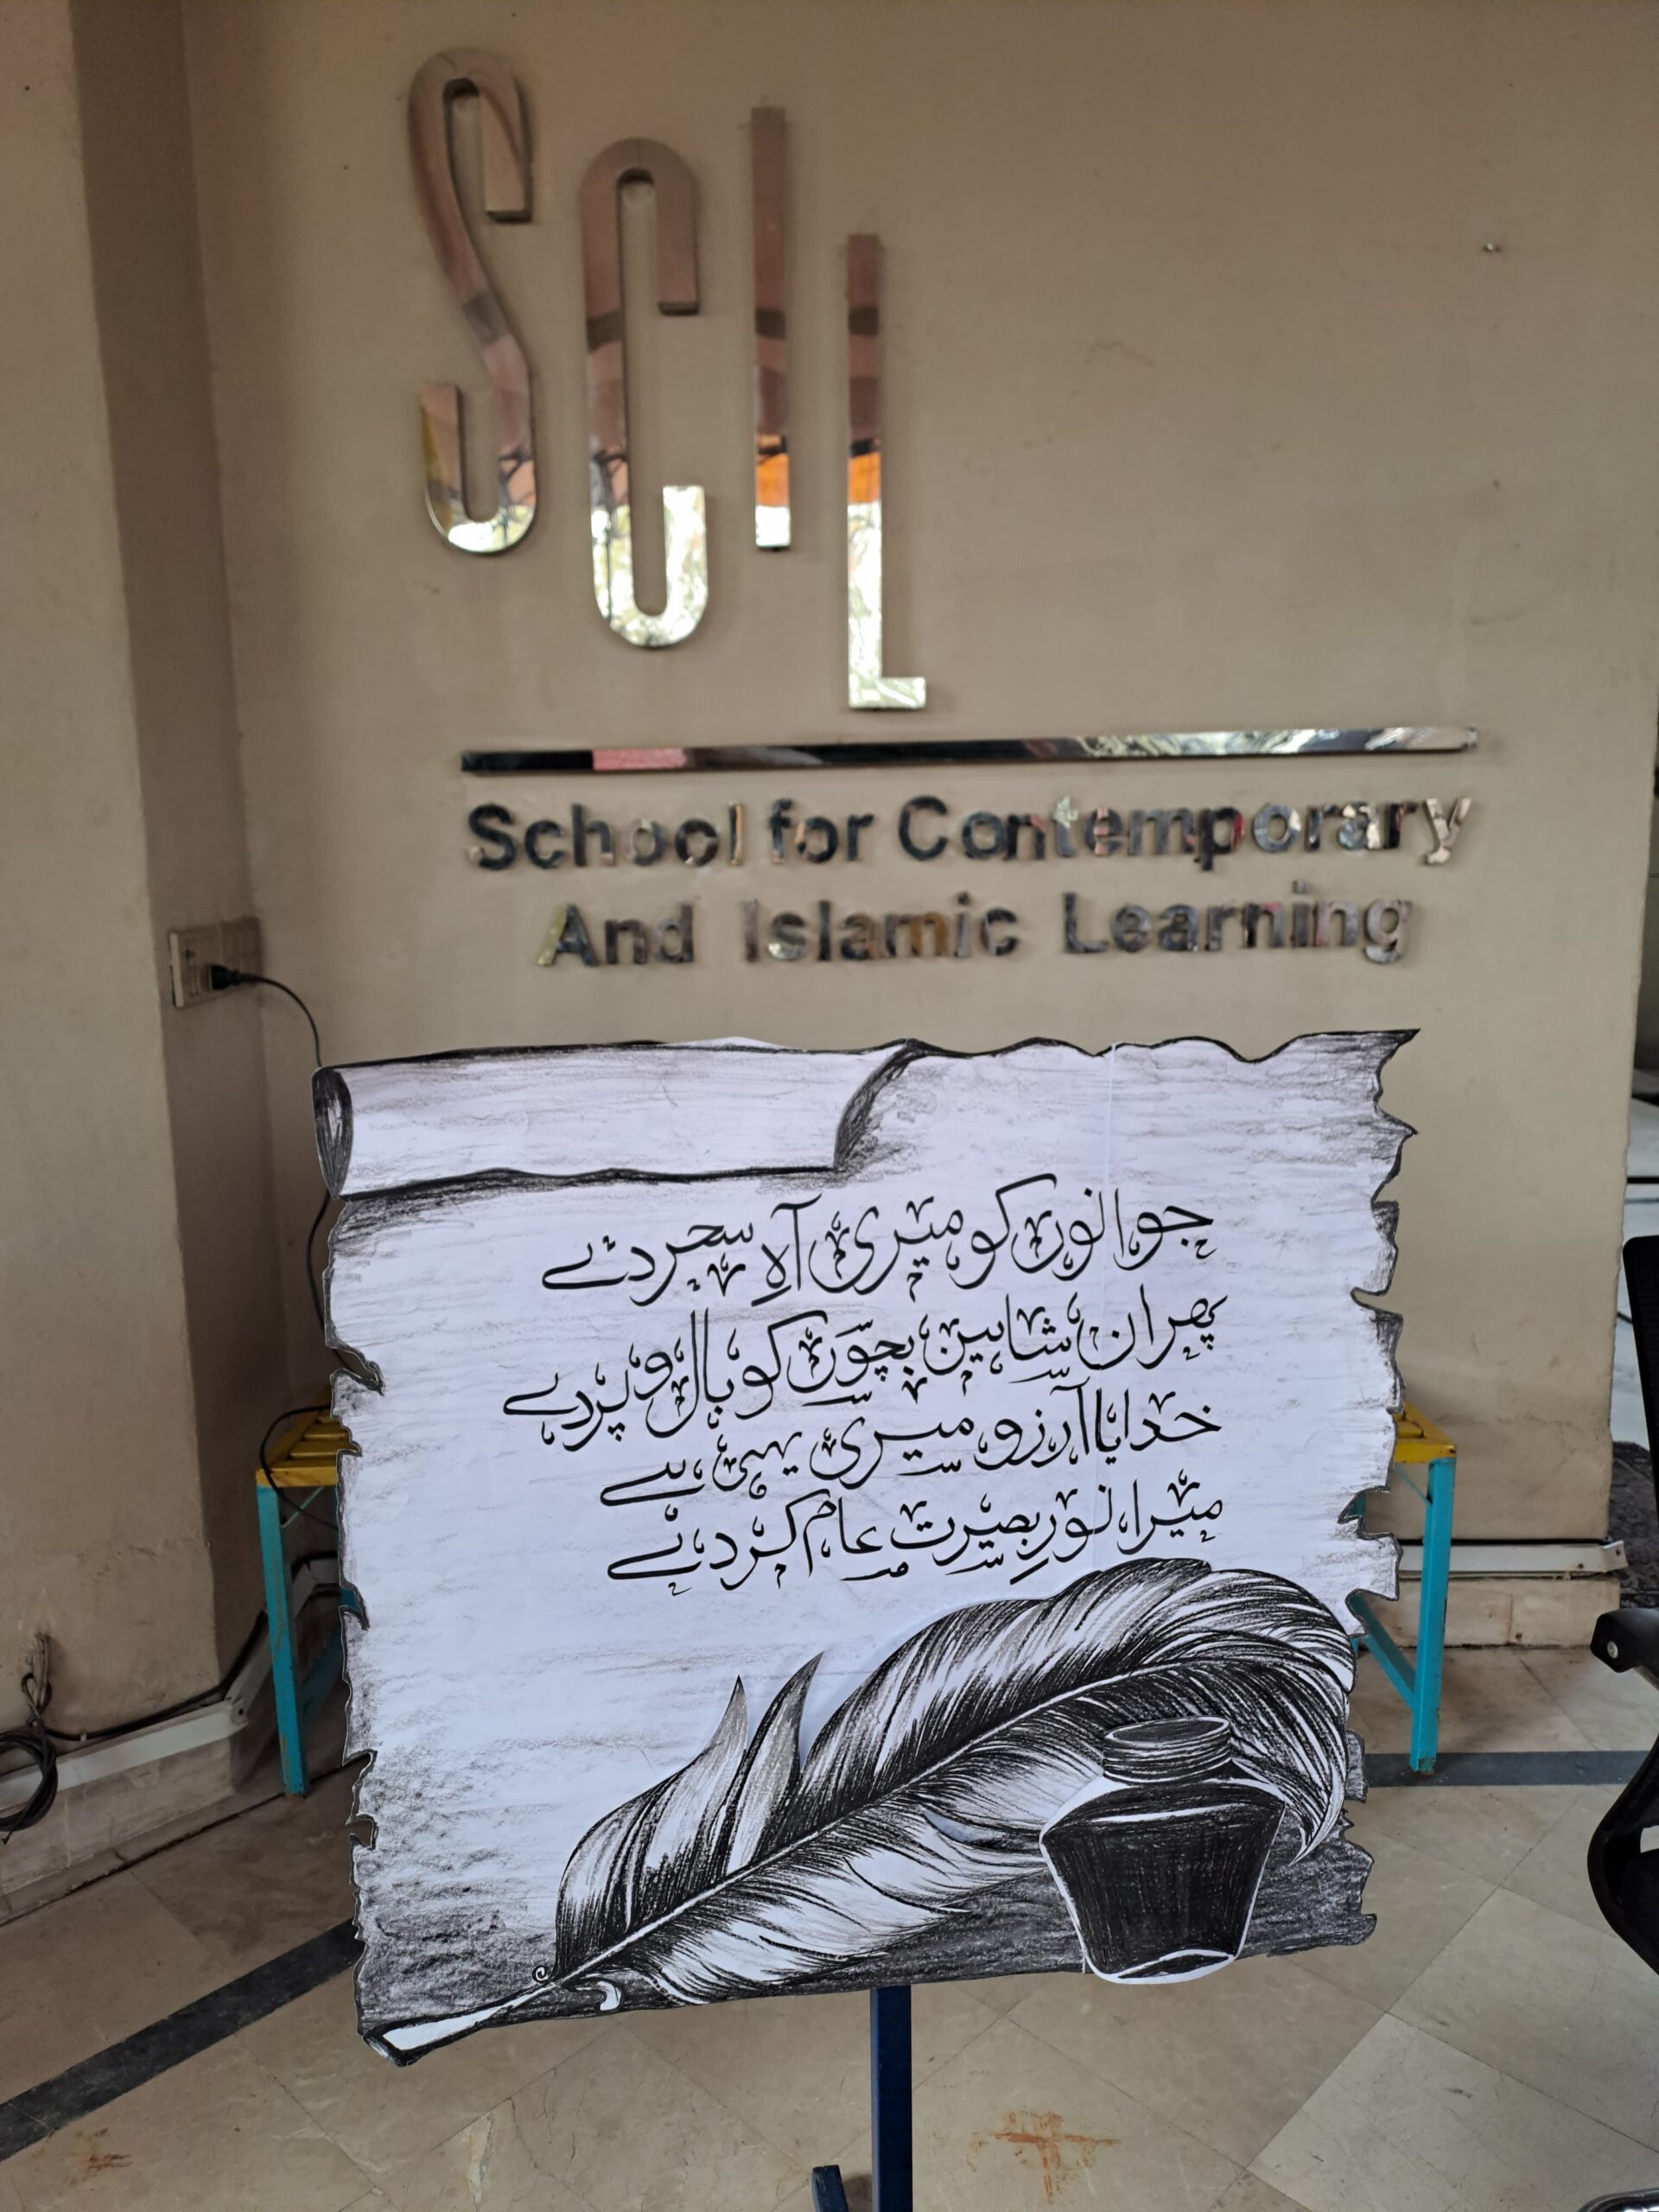 SCIL
School for Contemporary
And Islamic Learning
جوانوں کو میری آہِ سحر دے
پھر ان شاہین بچّوں کو بال و پر دے
خدایا آرزو میری یہی ہے
میرا نورِ بصیرت عام کر دے